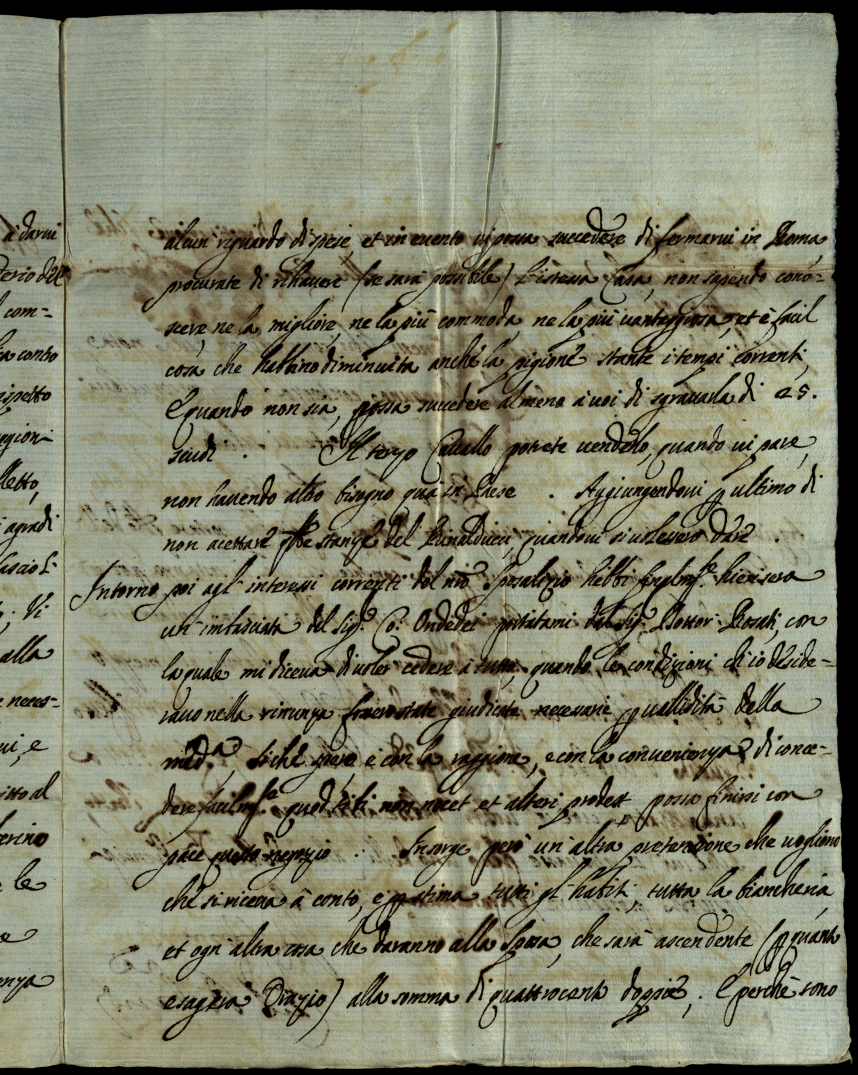 à darvi
terio del
l com=
ta conto
rispetto
aggion
lletto,
i agradi
lascio l'
Vi
alla
e neces=
ui, e
itto al
ferino
e le
enza
alcun riguardo di spese et in evento vi possa succedere di fermarvi in Roma
procurate di rihavere (se sarà possibile) l'istessa Casa, non sapendo cono=
scere, ne la migliore, ne la più commoda, ne la più vanteggiosa, et è facil
cosa che habbino diminuita anche la pigione stante i tempi correnti,
E quando non sia, possa succedere almeno à voi di sgravarla di 25.
scudi . Il terzo Cavallo potrete venderlo, quando vi pare,
non havendo altro bisogno qua in Paese . Aggiungendovi p ultimo di
non acettare stanze del Rinalducci, quando vi si volessero dare .
Intorno poi agl' interessi correnti del nro Sposalizio hebbi hiersera
un' imbasciata del Sigr Co: Ondedei portatami dal Sigr Dottor Rosati, con
la quale mi diceva di voler cedere à tutto, quando le condizioni ch' io deside=
ravo nella rinunza fossero state giudicate necessarie p vallidità della
medma Siche però e con la raggione, e con la convenienza di conce=
dere facilmte quod tibi non nocet et alteri prodest possa finirsi con
pace questo negozio . Insorge però un' altra pretenzione che vogliono
che si riceva à conto, e p stima tutti gl' habiti, tutta la biancheria
et ogn' altra cosa che daranno alla Sposa, che sarà ascendente (p quanto
esagera Orazio) alla somma di quattrocento doppie, E perche sono